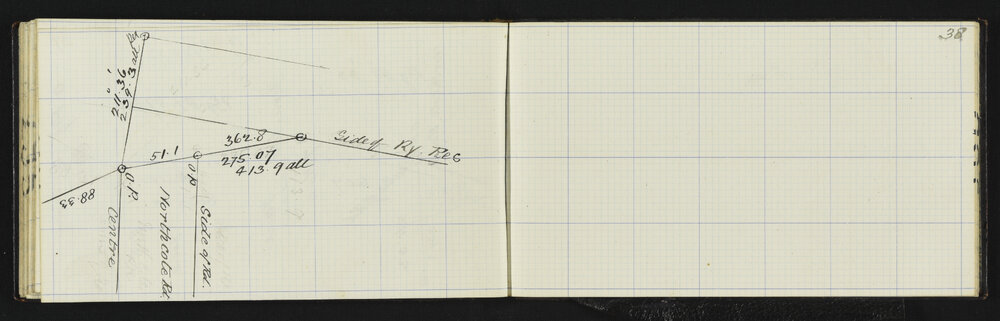 38
Peg
211.36
239.3 all
362.8
Side of Ry. Res
51.1
275.07
413.9 all
88.33
O.P.
O.P.
Centre
Northcote Rd.
Side of Rd.